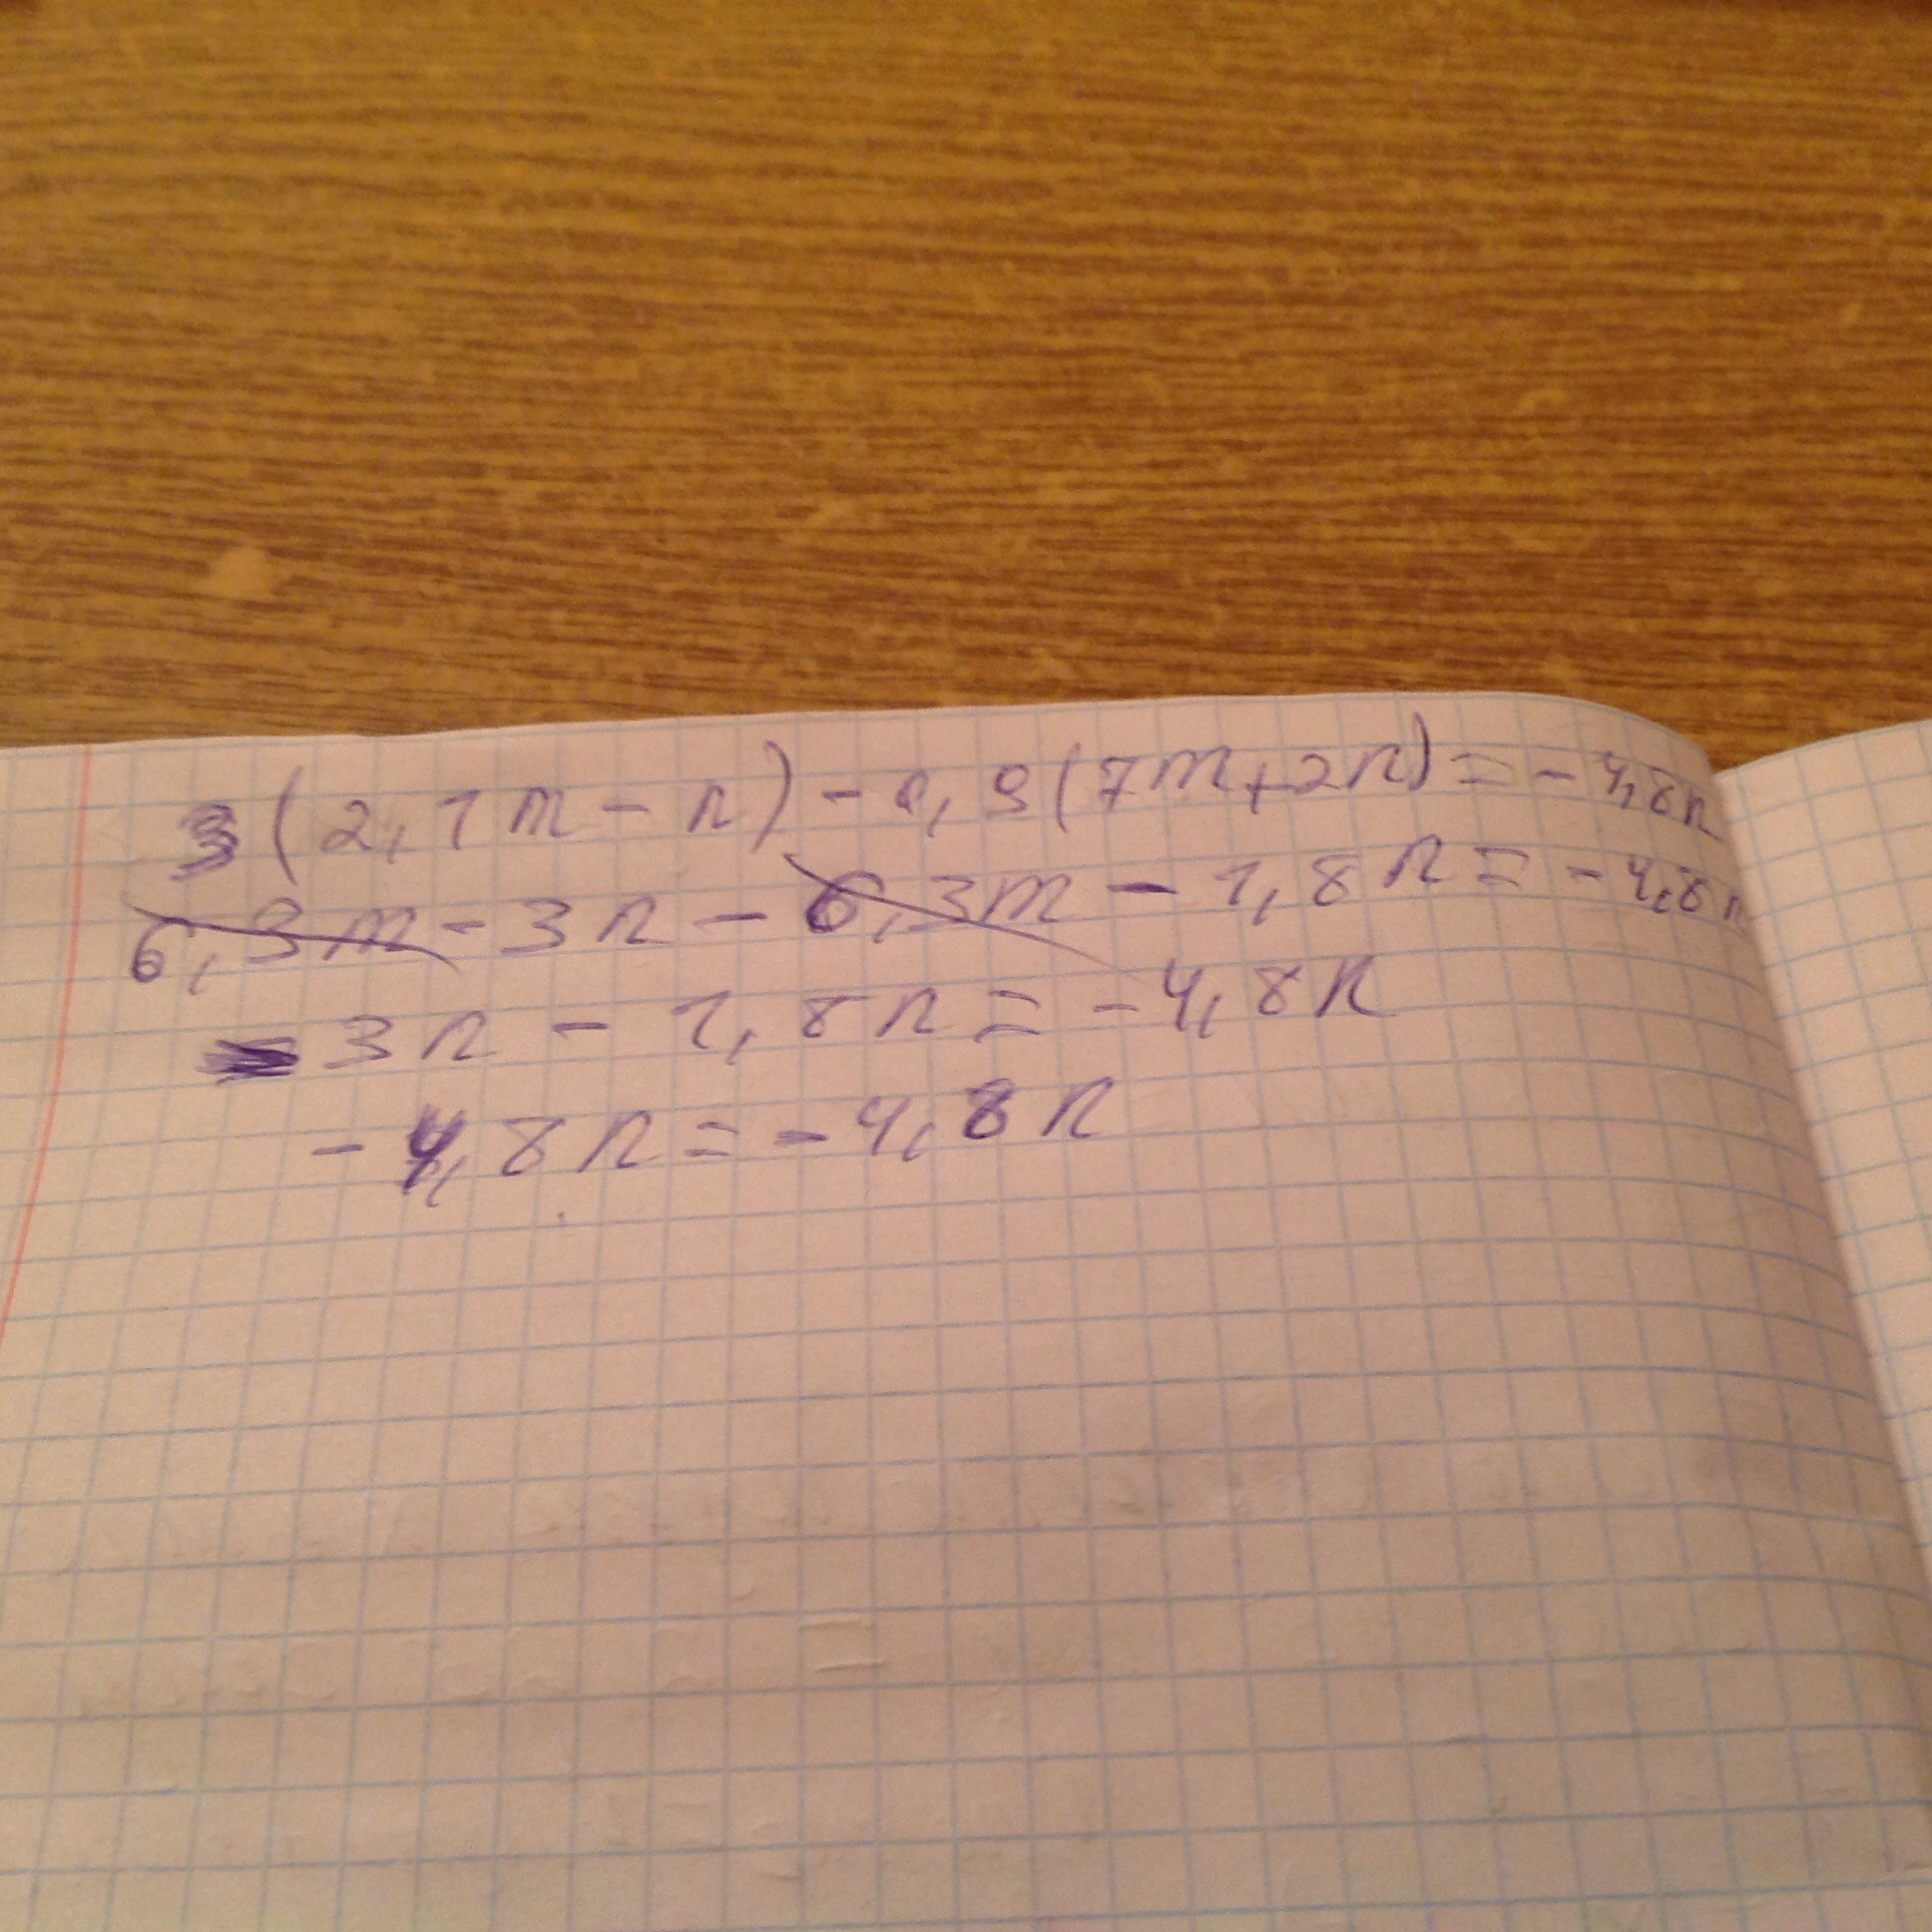 3(2,1m-n)-0,9(7m+2n)=-4,8n
6,3m-3n-6,3m-1,8n=-4,8n
-3n-1,8n=-4,8n
-4,8n=-4,8n